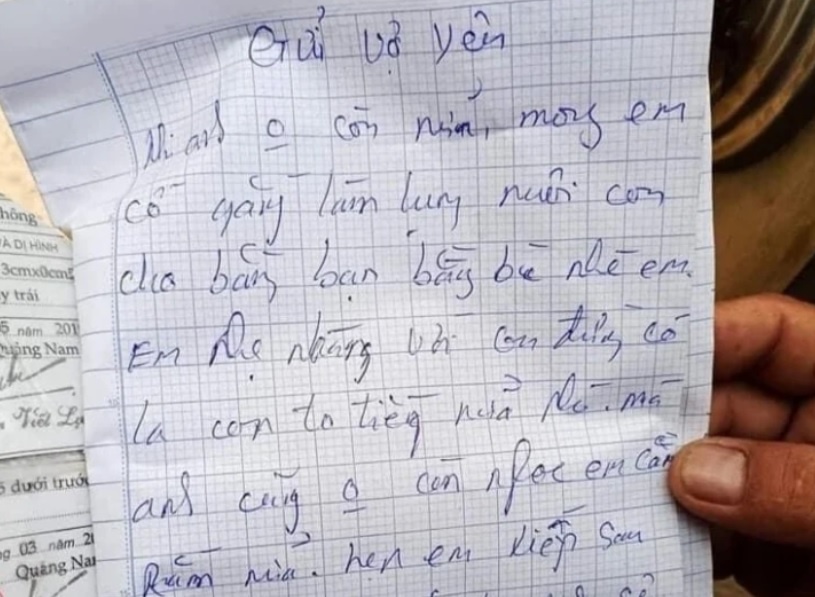 Gửi vợ Yến
Khi anh o còn nữa, mong em
cố gắng làm lụng nuôi con
cho bằng bạn bằng bè nhé em.
Em nhẹ nhàng với con đừng có
la con to tiếng nữa nhé. mà
anh cũng o còn nhọc em cằn
nhằn nữa. hẹn em kiếp sau
hông
À DỊ HÌNH
y trái
5 năm 201
Quảng Nam
Viết
5 dưới trước
g 03 năm 2
Quảng Na